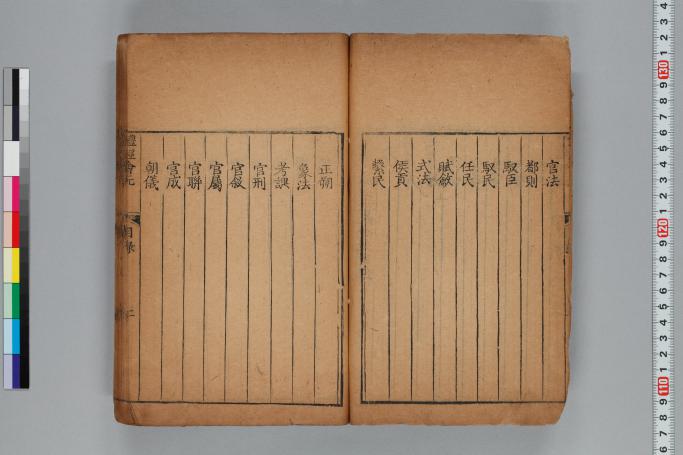 官法
都則
馭臣
馭民
任民
賦斂
式法
侯貢
繫民
正朔
象法
考課
官刑
官敘
官屬
官聯
官成
朝儀
禮經會元
目錄
二